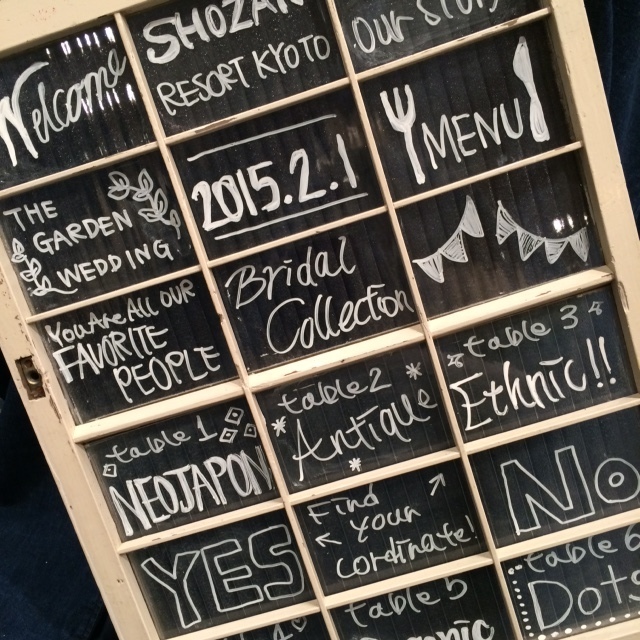 Welcome
THE
GARDEN
WEDDING
YOU ARE ALL OUR
FAVORITE
PEOPLE
table 1
NEOJAPON
YES
SHOZAN
RESORT KYOTO
2015.2.1
Bridal
Collection
table 2
Antique
Find
your
cordinate!
table 5
MENU
table 3
Ethnic!!
NO
table 6
Dots